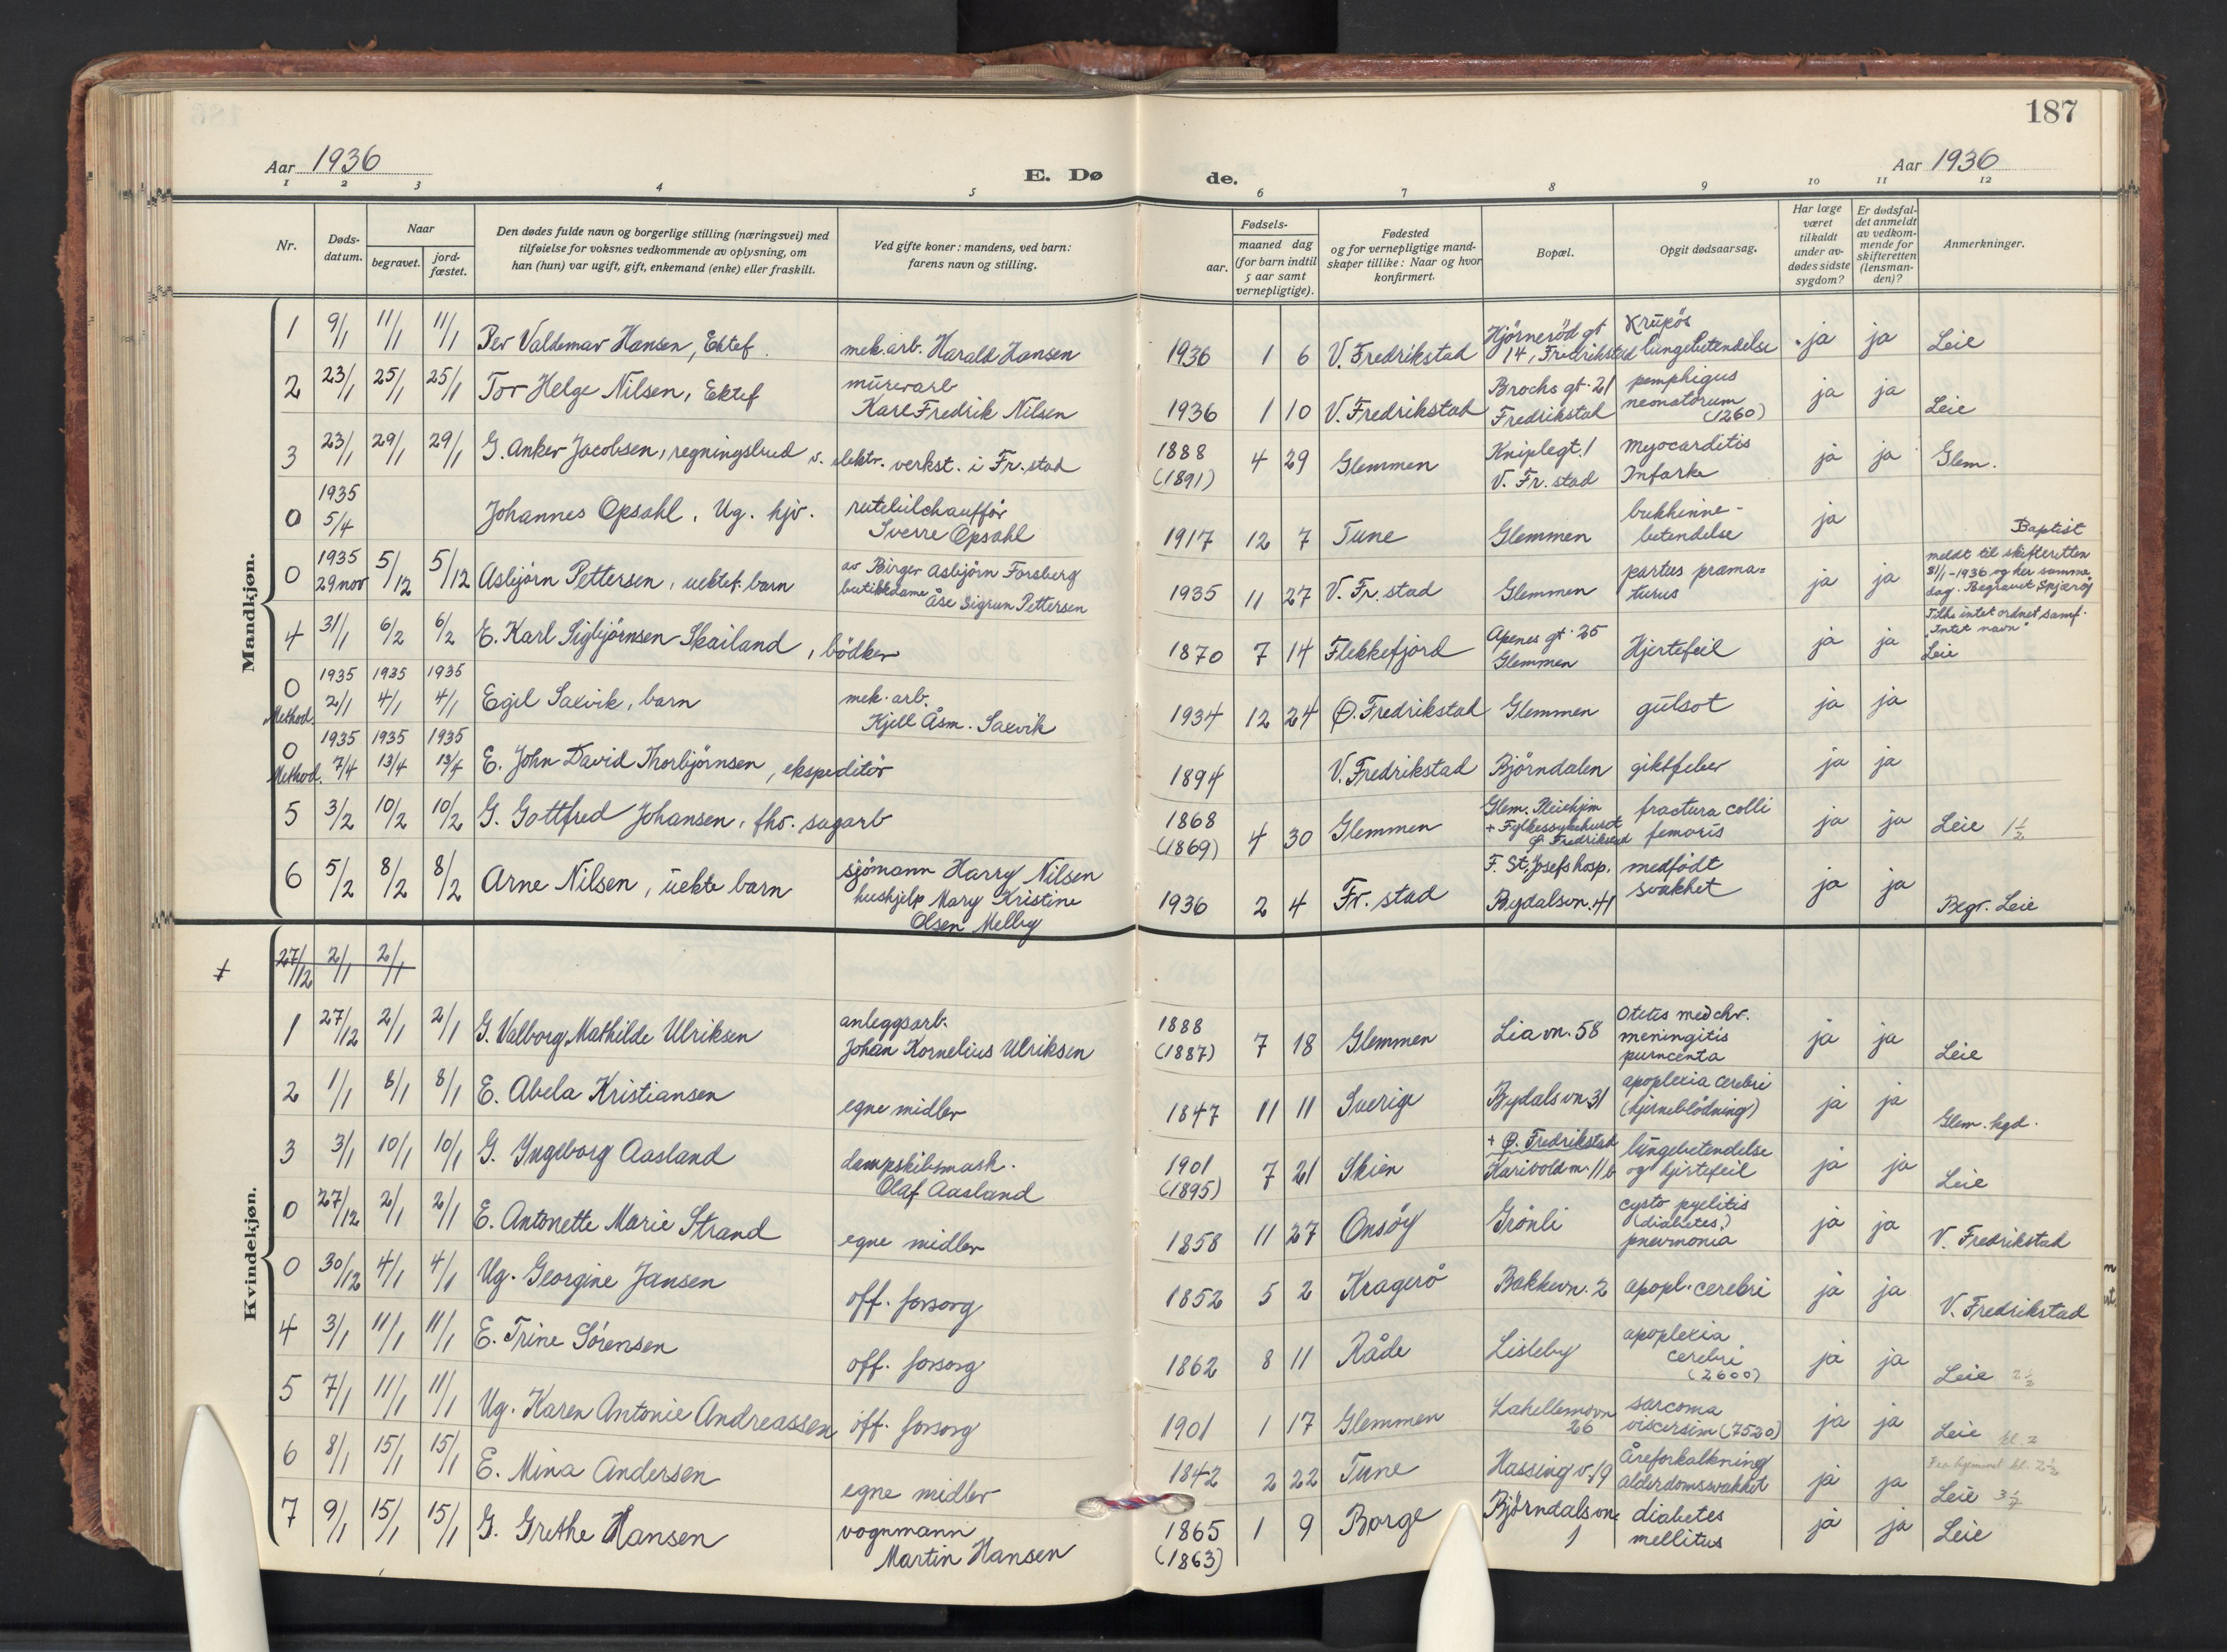 187
Aar 1936
E. Dø
de.
Aar 1936
1 2 3 4 5 6 7 8 9 10 11 12
Nr.
Døds-
datum.
Naar
begravet.
jord-
fæstet.
Den dødes fulde navn og borgerlige stilling (næringsvei) med
tilføielse for voksnes vedkommende av oplysning, om
han (hun) var ugift, gift, enkemand (enke) eller fraskilt.
Ved gifte koner: mandens, ved barn:
farens navn og stilling.
Fødsels-
aar.
maaned dag
(for barn indtil
5 aar samt
vernepligtige).
Fødested
og for vernepligtige mand-
skaper tillike: Naar og hvor
konfirmert.
Bopæl.
Opgit dødsaarsag.
Har læge
været
tilkaldt
under av-
dødes sidste
sygdom?
Er dødsfal-
det anmeldt
av vedkom-
mende for
skifteretten
(lensman-
den)?
Anmerkninger.
Mandkjøn.
1 9/1 11/1 11/1 Per Valdemar Hansen, Ektef. mek.arb. Harald Hansen 1936 1 6 V. Fredrikstad Hjørnerød gt 14, Fredrikstad Krupøs lungebetendelse ja ja Leie
2 23/1 25/1 25/1 Tor Helge Nilsen, Ektef murerarb Karl Fredrik Nilsen 1936 1 10 V. Fredrikstad Brochs gt. 21 Fredrikstad pemphigus neonatorum (1260) ja ja Leie
3 23/1 29/1 29/1 G. Anker Jacobsen, regningsbud v. elektr. verkst. i Fr.stad 1888 (1891) 4 29 Glemmen Kniplegt. 1 V. Fr. stad Myocarditis Infarkt ja ja Glem.
0 1935 5/4 Johannes Opsahl, Ug. hjv. rutebilchauffør Sverre Opsahl 1917 12 7 Tune Glemmen bukhinne-betendelse ja Baptist
0 1935 29 nov 5/12 5/12 Asbjørn Pettersen, uektef. barn av Birger Asbjørn Forsberg butikkdame Åse Sigrun Pettersen 1935 11 27 V. Fr. stad Glemmen partus præma=turus ja ja meldt til skifteretten 31/1-1936 og her samme dag. Begravet Spjærøy
Tilh. intet ordnet samf. "Intet navn"
4 31/1 6/2 6/2 E. Karl Sigbjørnsen Skailand, bødker 1870 7 14 Flekkefjord Apenes gt. 25 Glemmen Hjertefeil ja ja Leie
0 Method. 1935 2/1 1935 4/1 1935 4/1 Egil Saxvik, barn mek. arb. Kjell Åsm. Saxvik 1934 12 24 Ø. Fredrikstad Glemmen gulsot ja ja
0 Method. 1935 7/4 1935 13/4 1935 13/4 E. John David Thorbjørnsen, ekspeditør 1894 V. Fredrikstad Bjørndalen giktfeber ja ja
5 3/2 10/2 10/2 G. Gottfred Johansen, fhv. sagarb 1868 (1869) 4 30 Glemmen Glem. Pleiehjm + Fylkessykehuset Ø. Fredrikstad fractura colli femoris ja ja Leie 1 1/2
6 5/2 8/2 8/2 Arne Nilsen, uekte barn sjømann Harry Nilsen hushjelp Mary Kristine Olsen Melby 1936 2 4 Fr. stad F. St. Josefs hosp. Bydalsvn. 41 medfødt svakhet ja ja Begr. Leie
Kvindekjøn.
27/12 2/1 2/1
1 27/12 2/1 2/1 G. Valborg Mathilde Ulriksen anleggsarb. Johan Kornelius Ulriksen 1888 (1887) 7 18 Glemmen Lia vn. 58 Otitis med chr. meningitis ja ja Leie
2 1/1 8/1 8/1 E. Abela Kristiansen egne midler 1847 11 11 Sverige Bydals vn 31 apoplexia cerebri (hjerneblødning) ja ja Glem. kgd.
3 3/1 10/1 10/1 G. Ingeborg Aasland dampskibsmask. Olaf Aasland 1901 (1895) 7 21 Skien + Ø. Fredrikstad Karivold m. 11 b lungebetendelse og hjertefeil ja ja Leie
0 27/12 2/1 2/1 E. Antonette Marie Strand egne midler 1858 11 27 Onsøy Grønli cysto pyelitis (diabetes) pneumonia ja ja V. Fredrikstad
0 30/12 4/1 4/1 Ug. Georgine Jansen off. forsorg 1852 5 2 Kragerø Bakkevn. 2 apopl. cerebri ja ja V. Fredrikstad
4 3/1 11/1 11/1 E. Trine Sørensen off. forsorg 1862 8 11 Råde Lisleby apoplexia cerebri (2600) ja ja Leie 2 1/2
5 7/1 11/1 11/1 Ug. Karen Antonie Andreassen off. forsorg 1901 1 17 Glemmen Lahellemovn 26 sarcoma (7520) ja ja Leie kl. 2
6 8/1 15/1 15/1 E. Mina Andersen egne midler 1842 2 22 Tune Hassing v. 19 åreforkalkning alderdomssvakhet ja ja Fra hjemmet kl. 2 1/2 Leie
7 9/1 15/1 15/1 G. Grethe Hansen vognmann Martin Hansen 1865 (1863) 1 9 Borge Bjørndalsvn. 1 diabetes mellitus ja ja Leie